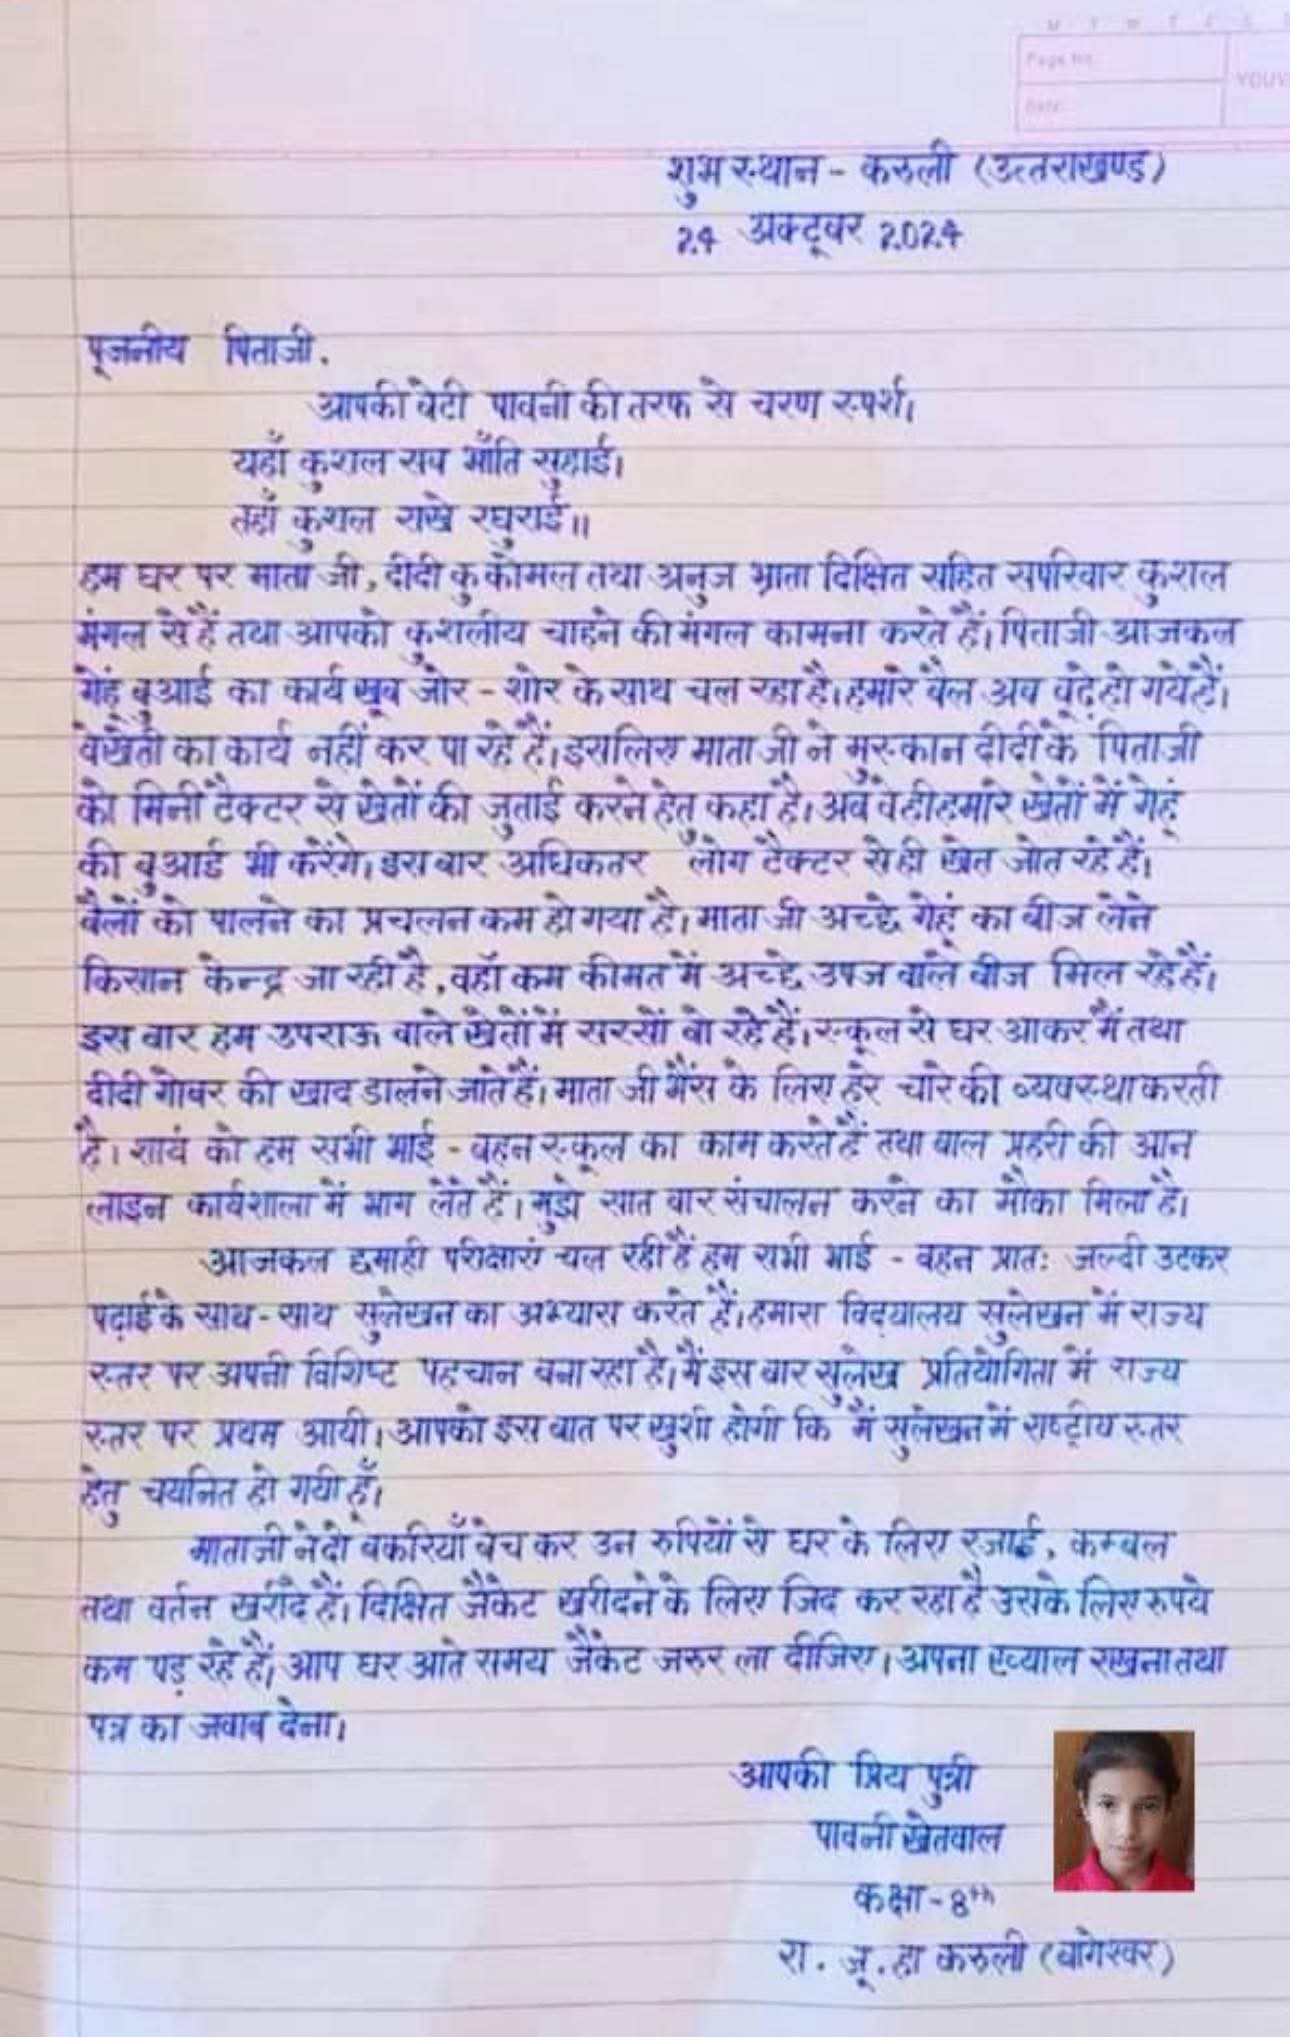 M T W T F S S
Page No.
YOUV
Date
शुभ स्थान - करुली (उत्तराखण्ड)
24 अक्टूबर 2024
पूजनीय पिताजी.
आपकी बेटी पावनी की तरफ से चरण स्पर्श।
यहाँ कुशल सब भाँति सुहाई।
तहाँ कुशल राखे रघुराई॥
हम घर पर माता जी, दीदी कु कोमल तथा अनुज भ्राता दिक्षित सहित सपरिवार कुशल
मंगल से हैं तथा आपको कुशलीय चाहने की मंगल कामना करते हैं। पिताजी आजकल
गेहूं बुआई का कार्य खूब जोर - शोर के साथ चल रहा है। हमारे बैल अब बूढ़े हो गये हैं।
वे खेती का कार्य नहीं कर पा रहे हैं। इसलिए माता जी ने मुस्कान दीदी के पिताजी
को मिनी टैक्टर से खेतों की जुताई करने हेतु कहा है। अब वे ही हमारे खेतों में गेहूं
की बुआई भी करेंगे। इस बार अधिकतर लोग टैक्टर से ही खेत जोत रहे हैं।
बैलों को पालने का प्रचलन कम हो गया है। माता जी अच्छे गेहूं का बीज लेने
किसान केन्द्र जा रही है, वहाँ कम कीमत में अच्छे उपज वाले बीज मिल रहे हैं।
इस बार हम उपराऊ वाले खेतों में सरसों बो रहे हैं। स्कूल से घर आकर मैं तथा
दीदी गोबर की खाद डालने जाते हैं। माता जी भैंस के लिए हरे चारे की व्यवस्था करती
है। शायं को हम सभी भाई - बहन स्कूल का काम करते हैं तथा बाल प्रहरी की आन
लाइन कार्यशाला में भाग लेते हैं। मुझे सात बार संचालन करने का मौका मिला है।
आजकल छमाही परीक्षाएं चल रही हैं हम सभी भाई - बहन प्रातः जल्दी उठकर
पढ़ाई के साथ-साथ सुलेखन का अभ्यास करते हैं। हमारा विद्यालय सुलेखन में राज्य
स्तर पर अपनी विशिष्ट पहचान बना रहा है। मैं इस बार सुलेख प्रतियोगिता में राज्य
स्तर पर प्रथम आयी। आपको इस बात पर खुशी होगी कि मैं सुलेखन में राष्ट्रीय स्तर
हेतु चयनित हो गयी हूँ।
माताजी ने दो बकरियाँ बेच कर उन रुपियों से घर के लिए रजाई, कम्बल
तथा बर्तन खरीदे हैं। दिक्षित जैकेट खरीदने के लिए जिद कर रहा है उसके लिए रुपये
कम पड़ रहे हैं, आप घर आते समय जैकेट जरुर ला दीजिए। अपना ख्याल रखना तथा
पत्र का जवाब देना।
आपकी प्रिय पुत्री
पावनी खेतवाल
कक्षा - 8th
रा. जू. हा करुली (बागेश्वर)